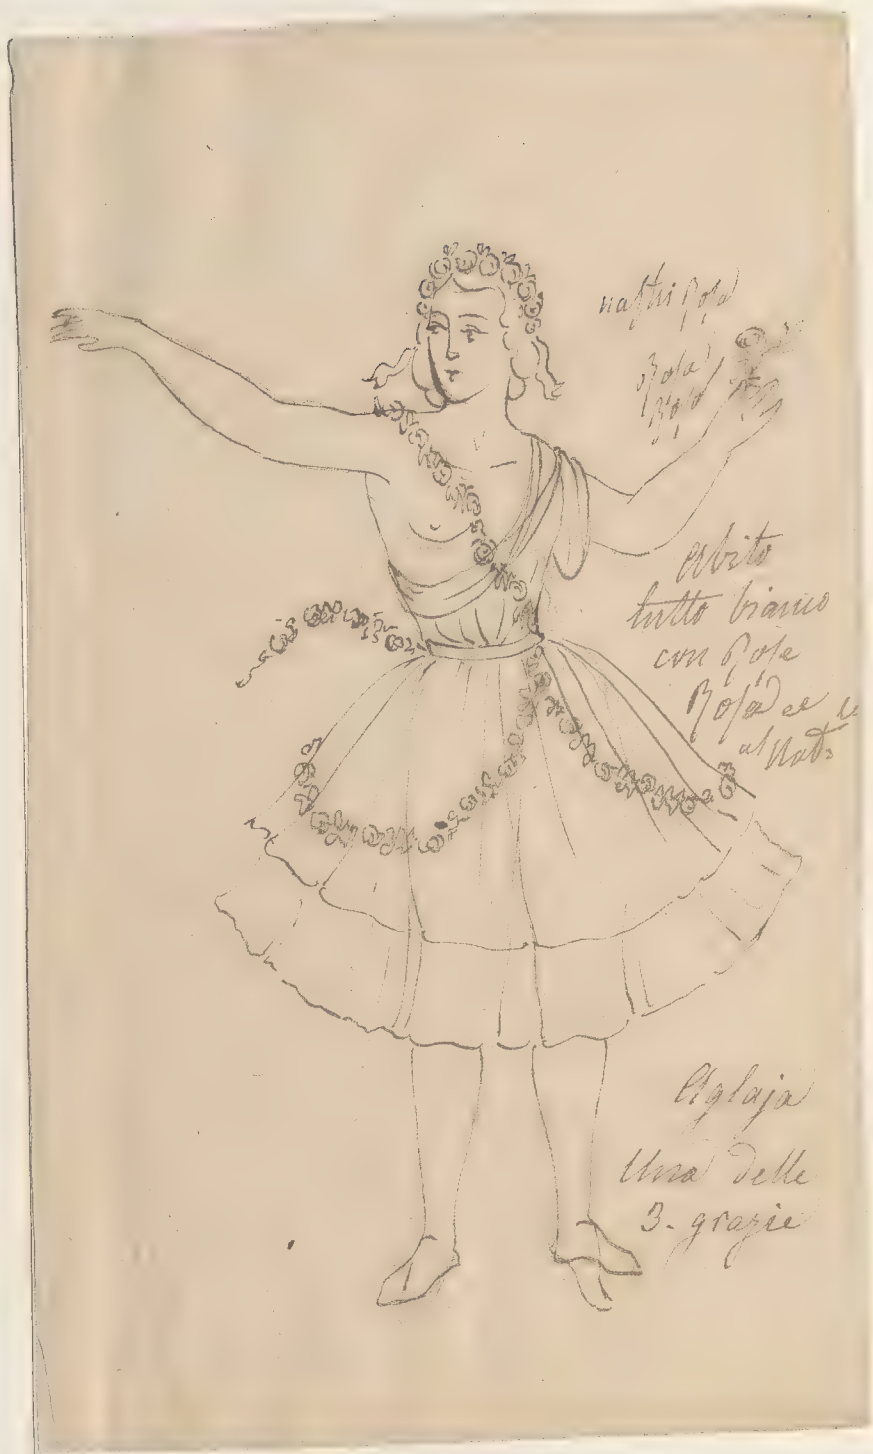 nastri rosa
Rosa
Rosa
Abito
tutto bianco
con rose
Rosa e le
al Nat:
Aglaja
Una delle
3. grazie